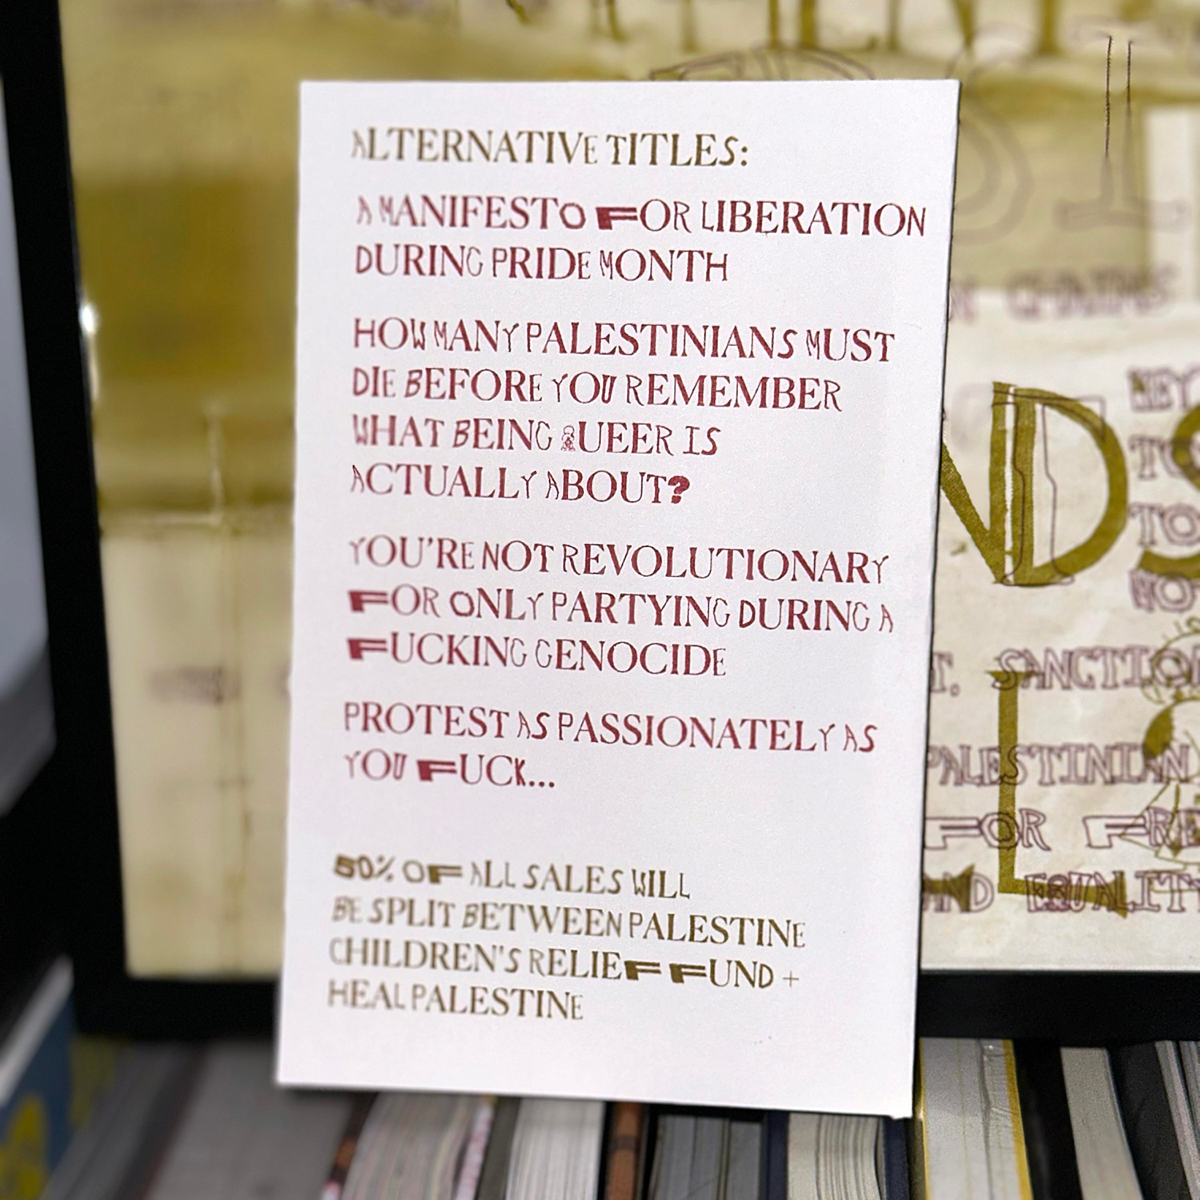 ALTERNATIVE TITLES:
A MANIFESTO FOR LIBERATION
DURING PRIDE MONTH
HOW MANY PALESTINIANS MUST
DIE BEFORE YOU REMEMBER
WHAT BEING QUEER IS
ACTUALLY ABOUT?
YOU'RE NOT REVOLUTIONARY
FOR ONLY PARTYING DURING A
FUCKING GENOCIDE
PROTEST AS PASSIONATELY AS
YOU FUCK...
50% OF ALL SALES WILL
BE SPLIT BETWEEN PALESTINE
CHILDREN'S RELIEF FUND +
HEAL PALESTINE
CHAINS
TO
TO
PALESTINIAN
FOR
AND EQUALIT